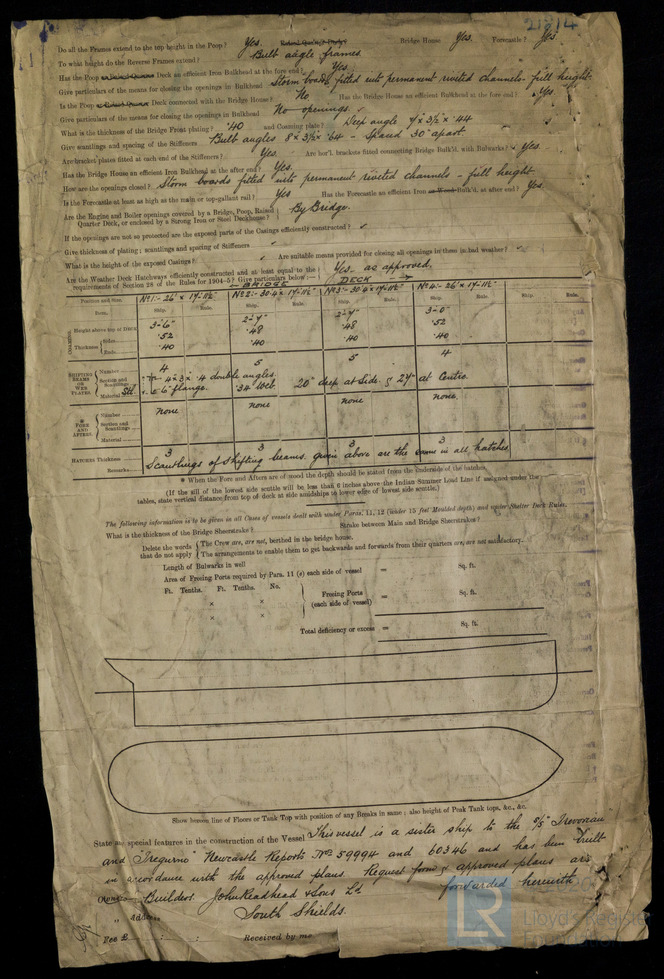 21814
Do all the Frames extend to the top height in the Poop? Yes. Raised Quarter Deck? Bridge House Yes. Forecastle? Yes
To what height do the Reverse Frames extend? Built angle frames.
Has the Poop or Raised Quarter Deck an efficient Iron Bulkhead at the fore end? Yes
Give particulars of the means for closing the openings in Bulkhead Storm boards fitted into permanent riveted channels - full height.
Is the Poop or Raised Quarter Deck connected with the Bridge House? No Has the Bridge House an efficient Bulkhead at the fore end? Yes.
Give particulars of the means for closing the openings in Bulkhead No openings
What is the thickness of the Bridge Front plating? .40 and Coaming plate? Deep angle 4 x 3½ x .44
Give scantlings and spacing of the Stiffeners Built angles 8 x 3½ x .64 - Spaced 30" apart.
Are bracket plates fitted at each end of the Stiffeners? Yes. Are hor'l. brackets fitted connecting Bridge Bulk'd. with Bulwarks? Yes.
Has the Bridge House an efficient Iron Bulkhead at the after end? Yes.
How are the openings closed? Storm boards fitted into permanent riveted channels - full height
Is the Forecastle at least as high as the main or top-gallant rail? Yes Has the Forecastle an efficient Iron or Wood Bulk'd. at after end? Yes
Are the Engine and Boiler openings covered by a Bridge, Poop, Raised Quarter Deck, or enclosed by a Strong Iron or Steel Deckhouse? By Bridge.
If the openings are not so protected are the exposed parts of the Casings efficiently constructed?
Give thickness of plating; scantlings and spacing of Stiffeners
What is the height of the exposed Casings? Are suitable means provided for closing all openings in them in bad weather?
Are the Weather Deck Hatchways efficiently constructed and at least equal to the requirements of Section 28 of the Rules for 1904-5? Give particulars below:— Yes - as approved.
BRIDGE DECK
Position and Size. No 1:- 26' x 17-11½" No 2:- 30.4 x 17-11½" No 3:- 30.4 x 17-11½" No 4:- 26' x 17-11½"
Item. Ship. Rule. Ship. Rule. Ship. Rule. Ship. Rule. Ship. Rule.
COAMING Height above top of DECK 3-6" 2-4" 2-4" 3-0"
Thickness Sides .52 .48 .48 .52
Ends .40 .40 .40 .40
SHIFTING BEAMS OR WEB PLATES Number 4 5 5 4
Section and Scantlings 4 x 3 x .4 double angles.
Material Stl. 6" flange. .34 Web. 20" deep at side. & 27" at Centre.
FORE AND AFTERS. Number none none none none.
Section and Scantlings
Material
HATCHES Thickness 3 3 3 3
Remarks Scantlings of shifting beams given above are the same in all hatches
* When the Fore and Afters are of wood the depth should be stated from the underside of the hatches.
(If the sill of the lowest side scuttle will be less than 6 inches above the Indian Summer Load Line if assigned under the
tables, state vertical distance from top of deck at side amidships to lower edge of lowest side scuttle.)
The following information is to be given in all Cases of vessels dealt with under Paras. 11, 12 (under 15 feet Moulded depth) and under Shelter Deck Rules.
What is the thickness of the Bridge Sheerstrake? Strake between Main and Bridge Sheerstrakes?
Delete the words that do not apply The Crew are, are not, berthed in the bridge house.
The arrangements to enable them to get backwards and forwards from their quarters are, are not satisfactory.
Length of Bulwarks in well
Area of Freeing Ports required by Para. 11 (e) each side of vessel = Sq. ft.
Ft. Tenths. Ft. Tenths. No.
× Freeing Ports (each side of vessel) = Sq. ft.
×
Total deficiency or excess = Sq. ft.
Show hereon line of Floors or Tank Top with position of any Breaks in same; also height of Peak Tank tops, &c., &c.
State any special features in the construction of the Vessel This vessel is a sister ship to the S/S "Trevorean"
and "Tregurno" Newcastle Reports Nos 59994 and 60346 and has been built
in accordance with the approved plans. Request form & approved plans are
forwarded herewith
Owners Builders John Readhead & Sons Ld
" Address South Shields.
Fee £ : : Received by me
LR
Lloyd's Register
Foundation